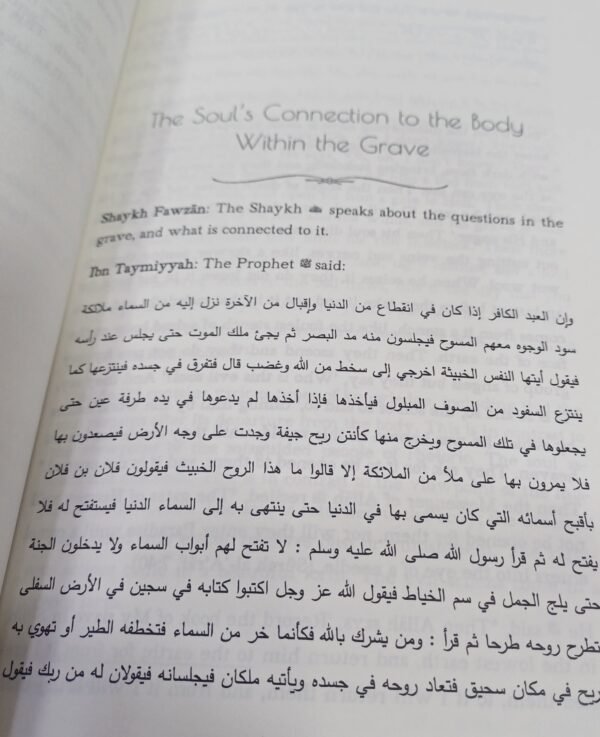 The Soul's Connection to the Body
Within the Grave
Shaykh Fawzān: The Shaykh speaks about the questions in the
grave, and what is connected to it.
Ibn Taymiyyah: The Prophet ﷺ said:
وإن العبد الكافر إذا كان في انقطاع من الدنيا وإقبال من الآخرة نزل إليه من السماء ملائكة
سود الوجوه معهم المسوح فيجلسون منه مد البصر ثم يجئ ملك الموت حتى يجلس عند رأسه
فيقول أيتها النفس الخبيثة اخرجي إلى سخط من الله وغضب قال فتفرق في جسده فينتزعها كما
ينتزع السفود من الصوف المبلول فيأخذها فإذا أخذها لم يدعوها في يده طرفة عين حتى
يجعلوها في تلك المسوح ويخرج منها كأنتن ريح جيفة وجدت على وجه الأرض فيصعدون بها
فلا يمرون بها على ملأ من الملائكة إلا قالوا ما هذا الروح الخبيث فيقولون فلان بن فلان
بأقبح أسمائه التي كان يسمى بها في الدنيا حتى ينتهى به إلى السماء الدنيا فيستفتح له فلا
يفتح له ثم قرأ رسول الله صلى الله عليه وسلم : لا تفتح لهم أبواب السماء ولا يدخلون الجنة
حتى يلج الجمل في سم الخياط فيقول الله عز وجل اكتبوا كتابه في سجين في الأرض السفلى
تطرح روحه طرحا ثم قرأ : ومن يشرك بالله فكأنما خر من السماء فتخطفه الطير أو تهوي به
ريح في مكان سحيق فتعاد روحه في جسده ويأتيه ملكان فيجلسانه فيقولان له من ربك فيقول